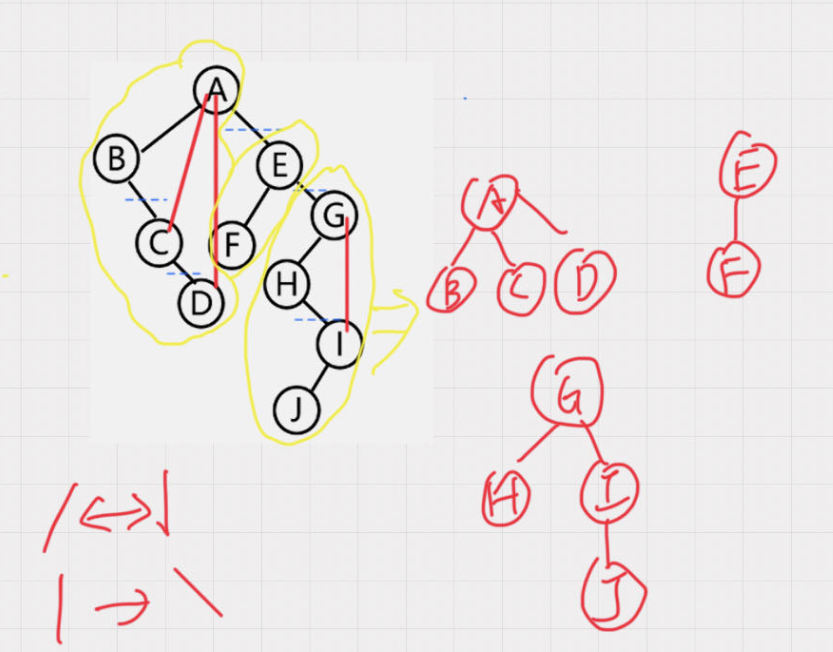 A
B
E
C
F
G
D
H
I
J
A
B C D
E
F
G
H I
J